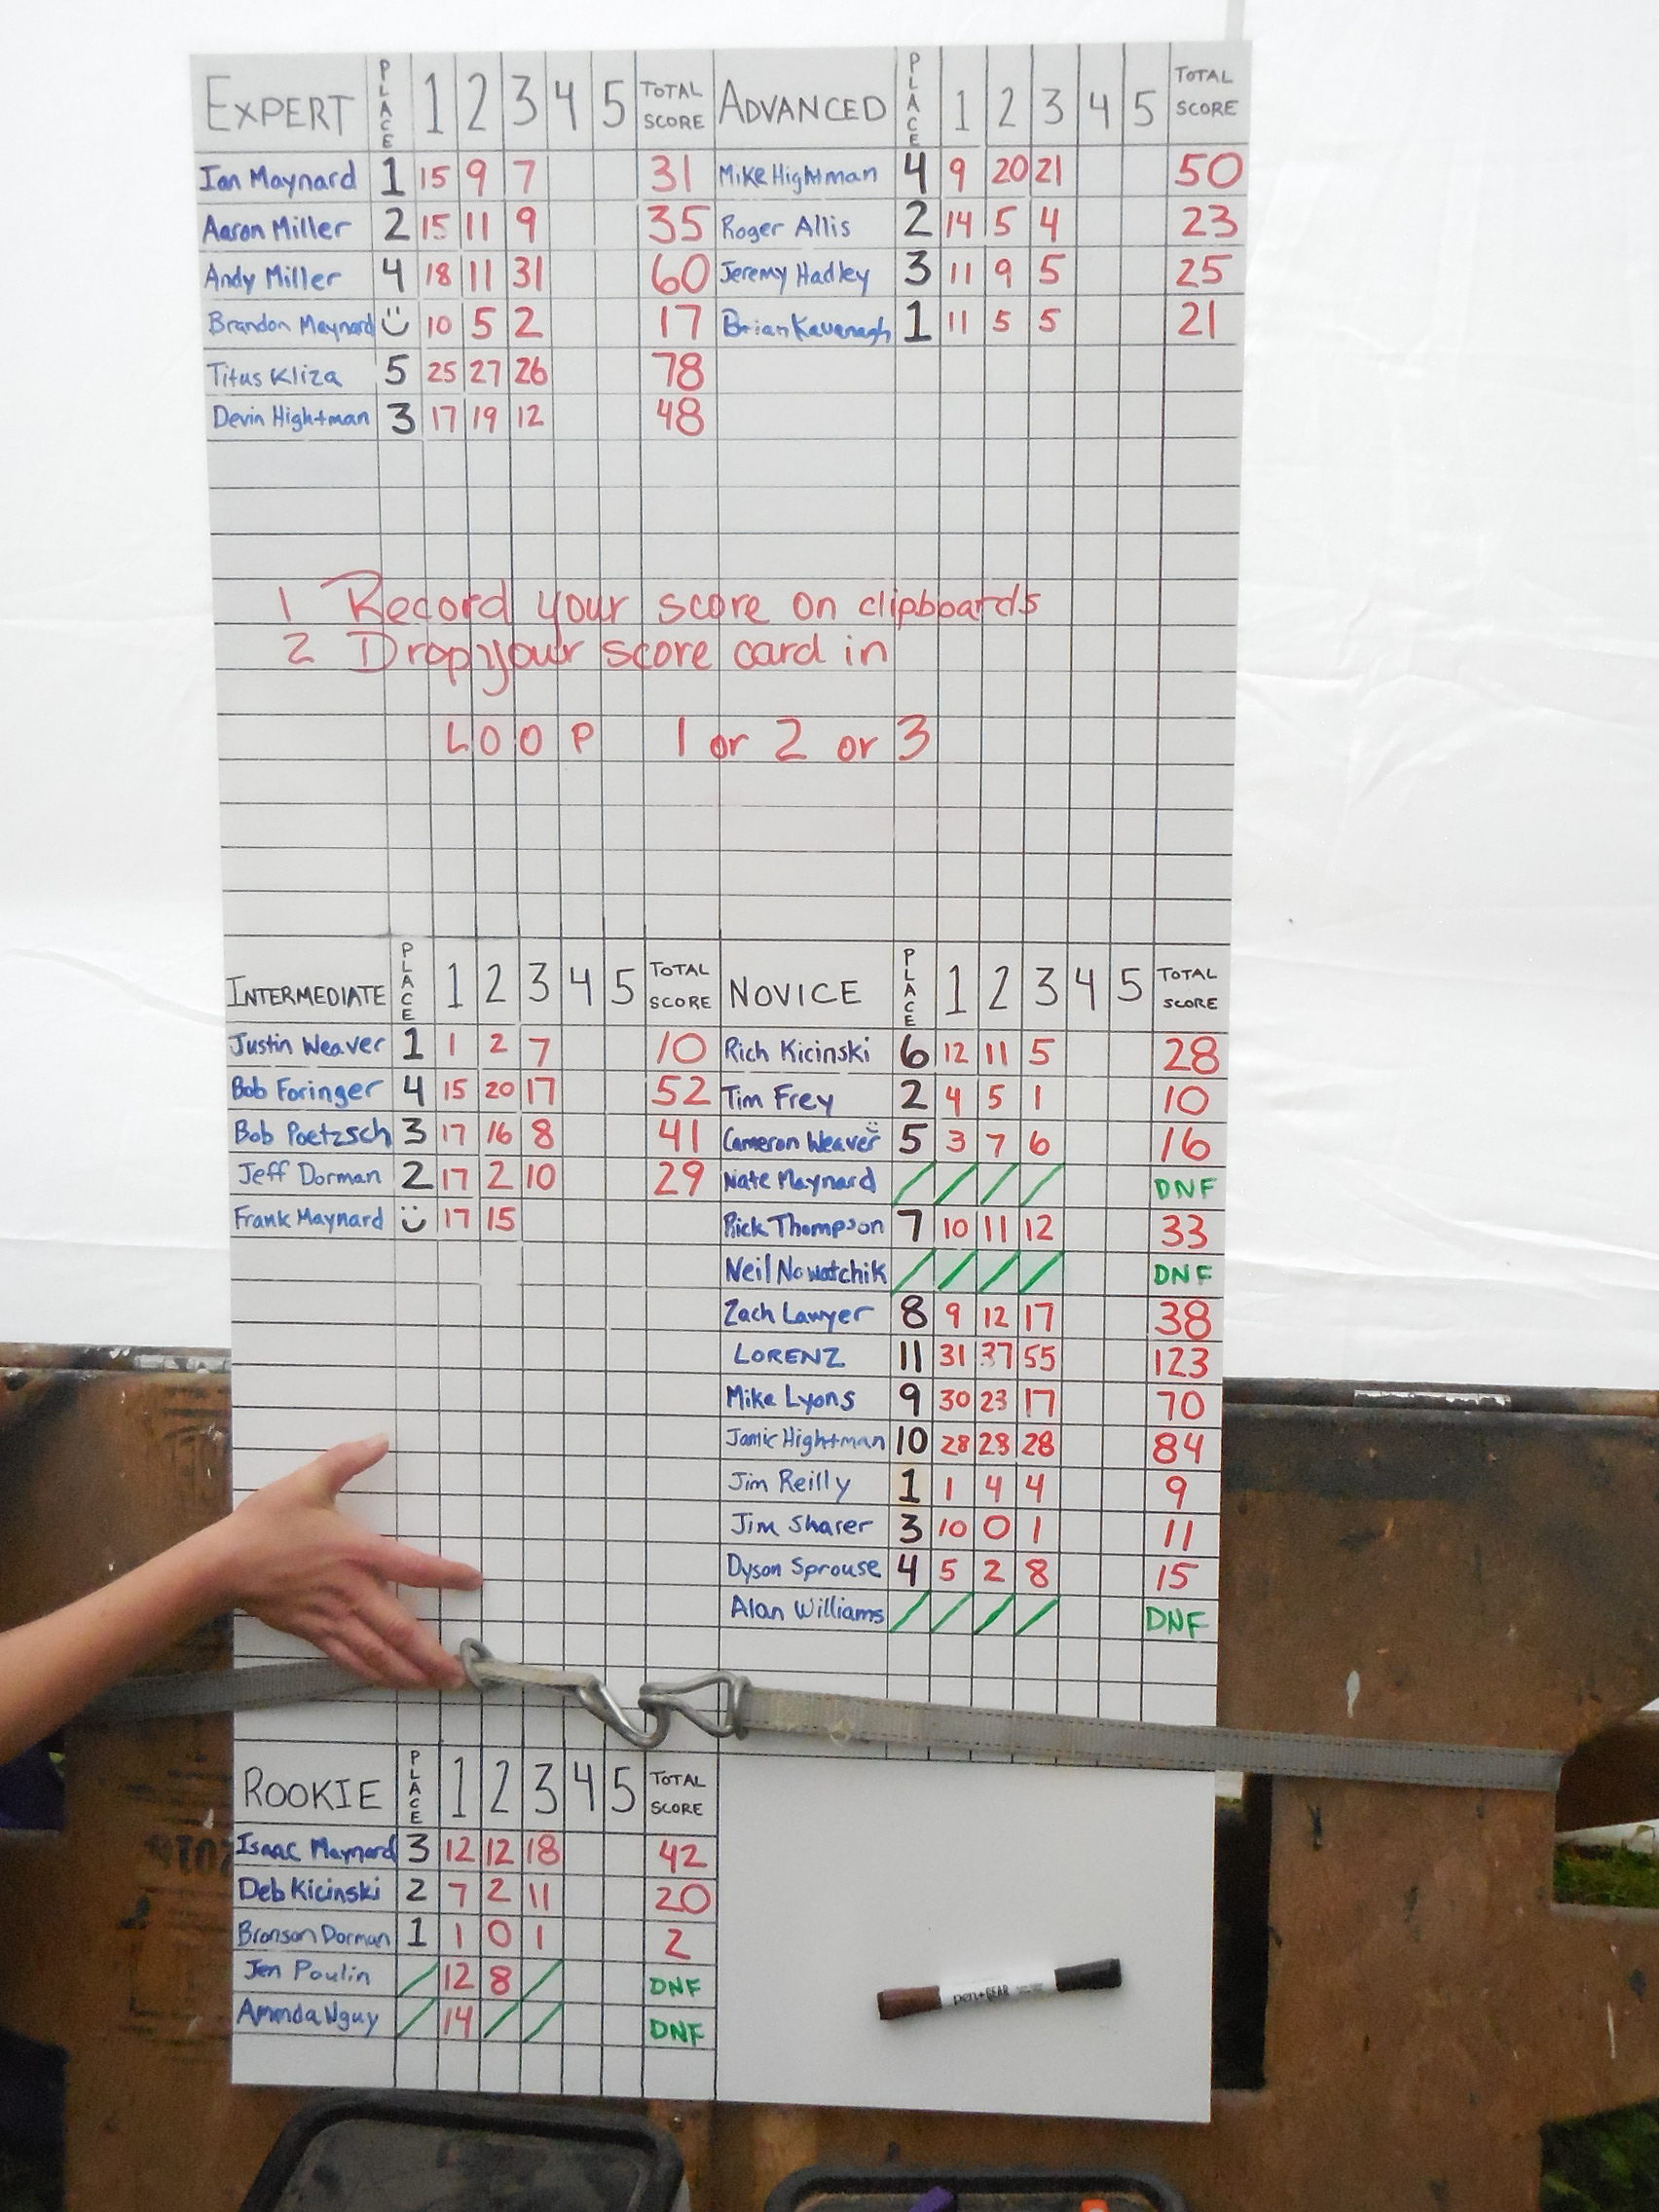 EXPERT PLACE 1 2 3 4 5 TOTAL SCORE
Ian Maynard 1 15 9 7 31
Aaron Miller 2 15 11 9 35
Andy Miller 4 18 11 31 60
Brandon Maynard 10 5 2 17
Titus Kliza 5 25 27 26 78
Devin Hightman 3 17 19 12 48
ADVANCED PLACE 1 2 3 4 5 TOTAL SCORE
Mike Hightman 4 9 20 21 50
Roger Allis 2 14 5 4 23
Jeremy Hadley 3 11 9 5 25
Brian Kavenagh 1 11 5 5 21
1 Record your score on clipboards
2 Drop your score card in
LOOP 1 or 2 or 3
INTERMEDIATE PLACE 1 2 3 4 5 TOTAL SCORE
Justin Weaver 1 1 2 7 10
Bob Foringer 4 15 20 17 52
Bob Poetzsch 3 17 16 8 41
Jeff Dorman 2 17 2 10 29
Frank Maynard 17 15
NOVICE PLACE 1 2 3 4 5 TOTAL SCORE
Rich Kicinski 6 12 11 5 28
Tim Frey 2 4 5 1 10
Cameron Weaver 5 3 7 6 16
Nate Maynard DNF
Rick Thompson 7 10 11 12 33
Neil Nowatchik DNF
Zach Lawyer 8 9 12 17 38
LORENZ 11 31 37 55 123
Mike Lyons 9 30 23 17 70
Jamie Hightman 10 28 28 28 84
Jim Reilly 1 1 4 4 9
Jim Sharer 3 10 0 1 11
Dyson Sprouse 4 5 2 8 15
Alan Williams DNF
ROOKIE PLACE 1 2 3 4 5 TOTAL SCORE
Isaac Maynard 3 12 12 18 42
Deb Kicinski 2 7 2 11 20
Bronson Dorman 1 1 0 1 2
Jen Poulin 12 8 DNF
Amanda Nguy 14 DNF
pen+GEAR